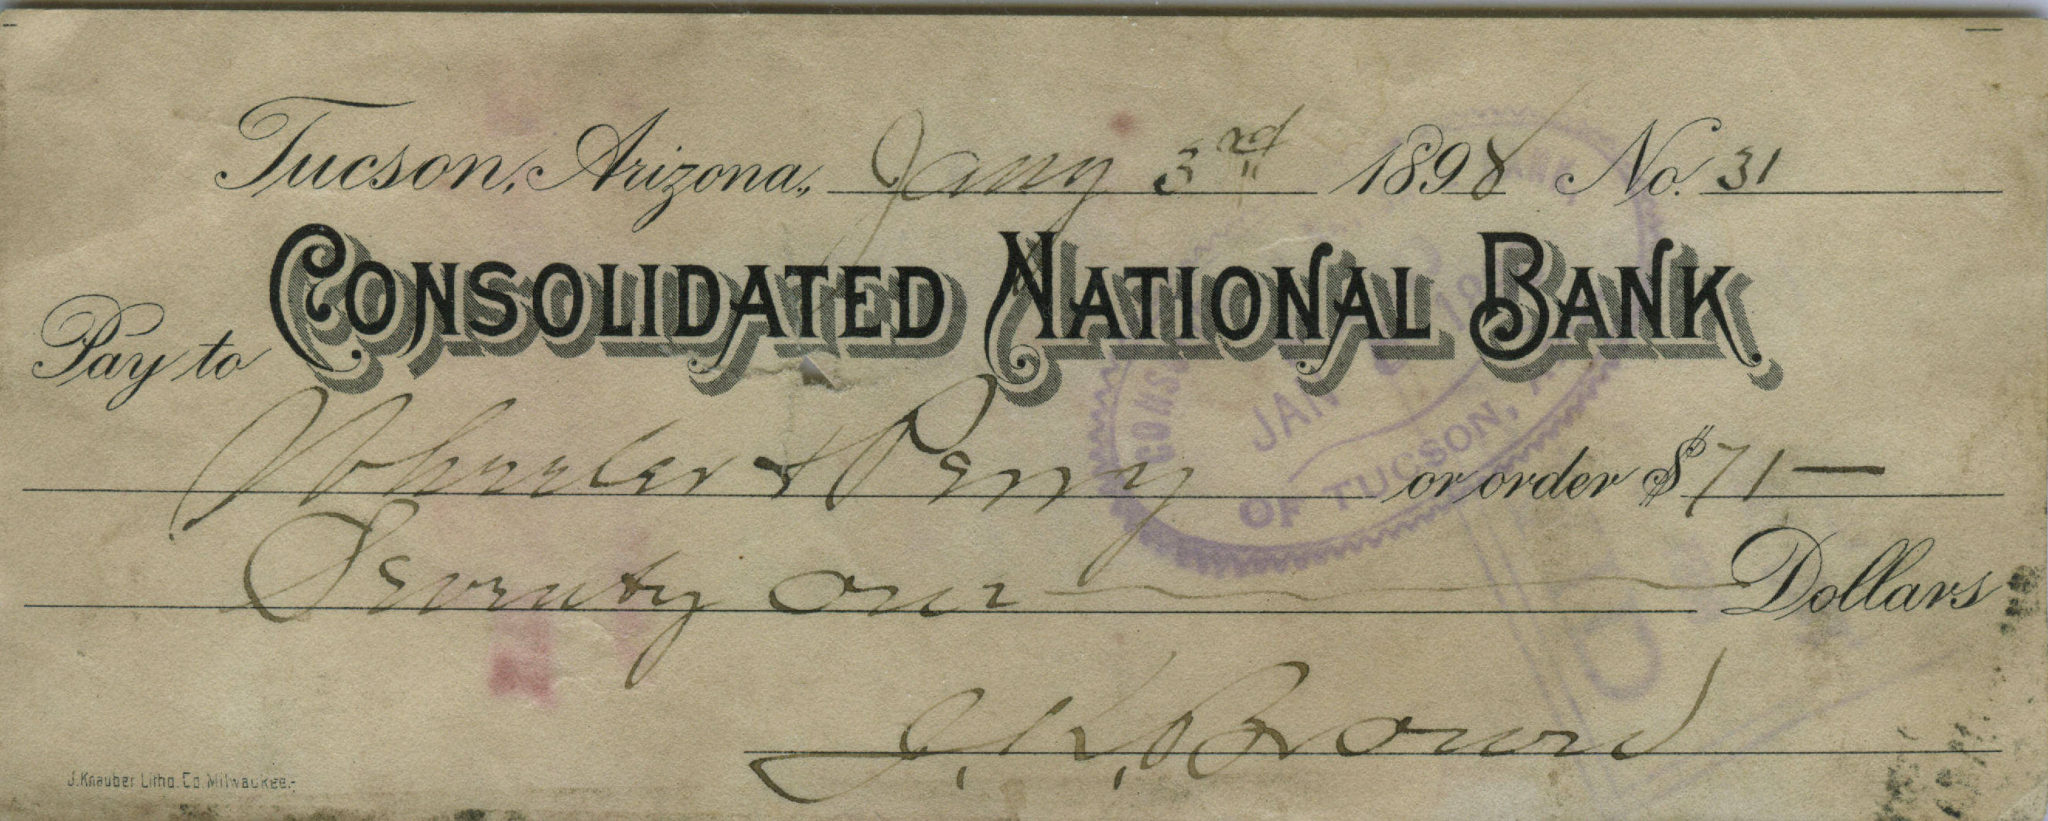 Tucson, Arizona, Jany 3rd 1898 No. 31
CONSOLIDATED NATIONAL BANK.
Pay to
Wheeler & Perry or order $71—
Seventy one Dollars
J. K. Brown
J. Knauber Litho. Co. Milwaukee.
JAN
OF TUCSON,